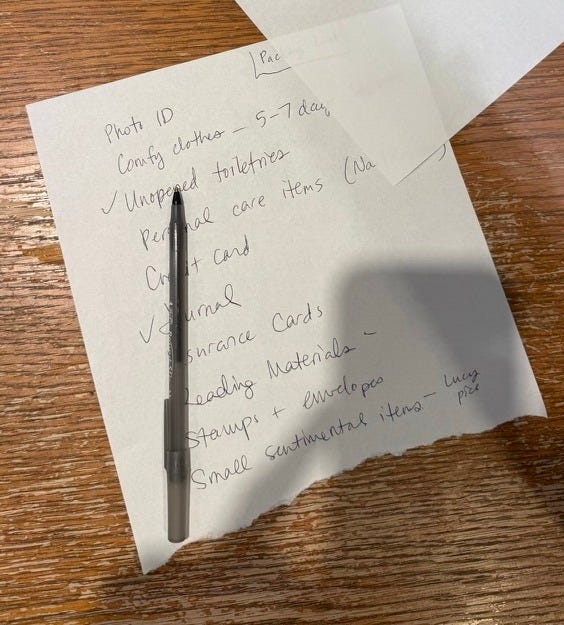 Pac
Photo ID
Comfy clothes – 5-7 day
✓ Unopened toiletries
Personal care items (Na )
Credit card
✓ Journal
surance Cards
Reading Materials -
Stamps + envelopes
Small sentimental items – Lucy
pice